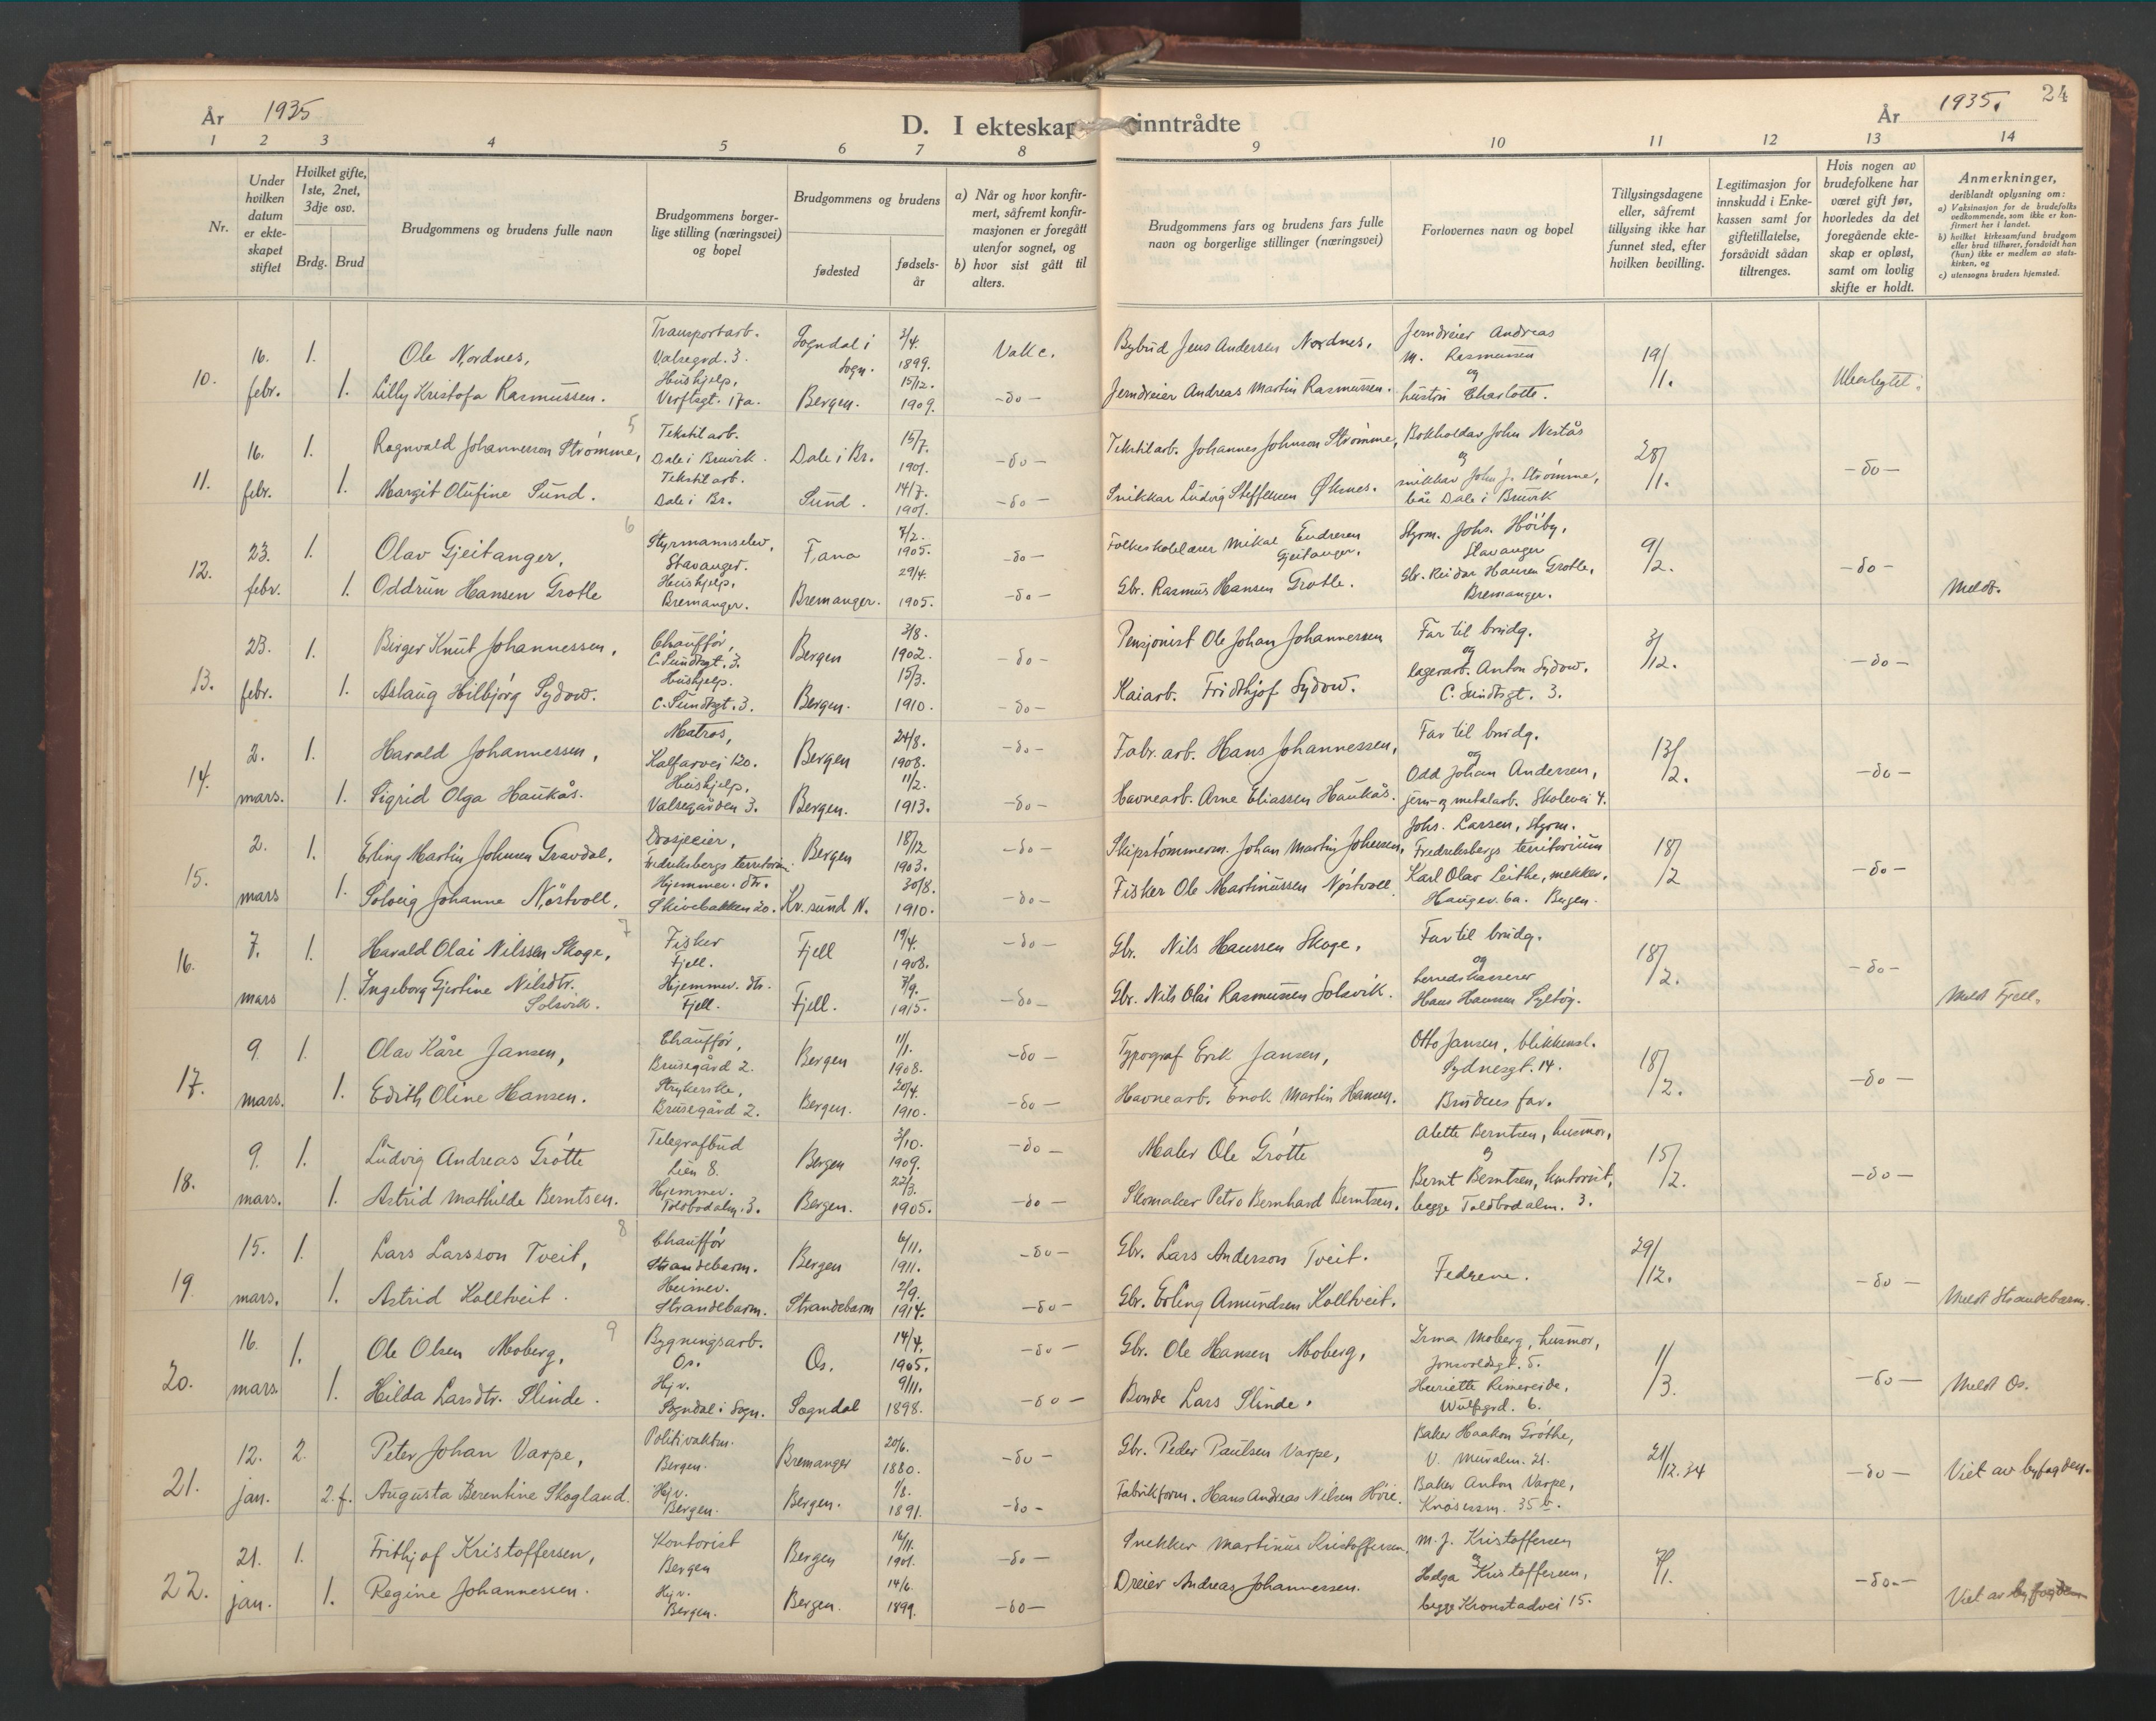 År 1935
D. I ekteskap inntrådte
År 1935. 24
1 2 3 4 5 6 7 8 9 10 11 12 13 14
Nr.
Under hvilken datum er ekteskapet stiftet
Hvilket gifte, 1ste, 2net, 3dje osv.
Brdg. Brud
Brudgommens og brudens fulle navn
Brudgommens borgerlige stilling (næringsvei) og bopel
Brudgommens og brudens
fødested
fødselsår
a) Når og hvor konfirmert, såfremt konfirmasjonen er foregått utenfor sognet, og
b) hvor sist gått til alters.
Brudgommens fars og brudens fars fulle navn og borgerlige stillinger (næringsvei)
Forlovernes navn og bopel
Tillysingsdagene eller, såfremt tillysing ikke har funnet sted, efter hvilken bevilling.
Legitimasjon for innskudd i Enkekassen samt for giftetillatelse, forsåvidt sådan tiltrenges.
Hvis nogen av brudefolkene har været gift før, hvorledes da det foregående ekteskap er opløst, samt om lovlig skifte er holdt.
Anmerkninger,
deriblandt oplysning om:
a) Vaksinasjon for de brudefolks vedkommende, som ikke er konfirmert her i landet.
b) hvilket kirkesamfund brudgom eller brud tilhører, forsåvidt han (hun) ikke er medlem av statskirken, og
c) utensogns bruders hjemsted.
10. 16. febr. 1. Ole Nordnes, Transportarb. Valsegrd. 3. Sogndal i Sogn. 3/4. 1899. Vakc. Bybud Jens Andersen Nordnes, Jerndreier Andreas M. Rasmussen og 19/1. Uberbyttet.
1. Lilly Kristofa Rasmussen. Hushjelp, Verftsgt. 17a. Bergen. 15/12. 1909. -do- Jerndreier Andreas Martin Rasmussen. hustru Charlotte.
5
11. 16. febr. 1. Ragnvald Johannesson Strömme, Tekstilarb. Dale i Bruvik. Dale i Br. 15/7. 1901. -do- Tekstilarb. Johannes Johnson Strömme, Bokholdar John Nestås og 28/1. -do-
1. Margit Olufine Sund. Tekstilarb. Dale i Br. Sund. 14/7. 1901. -do- Snikkar Ludvig Steffensen Øksnes. snikkar John J. Strömme, båe Dale i Bruvik
6
12. 23. febr. 1. Olav Gjeitanger, Styrmannselev, Stavanger. Fana 7/2. 1905. -do- Folkeskolelærer Mikal Endresen Gjeitanger. Styrm. Johs. Höiby, Stavanger 9/2. -do-
1. Oddrun Hansen Grotle Hushjelp, Bremanger. Bremanger. 29/4. 1905. -do- Gbr. Rasmus Hansen Grotle. Gbr. Reidar Hansen Grotle, Bremanger. Meldt.
13. 23. febr. 1. Birger Knut Johannessen, Chaufför, C. Sundtsgt. 3. Bergen 3/8. 1902. -do- Pensjonist Ole Johan Johannessen Far til brudg. og 3/12. -do-
1. Aslaug Hilbjörg Sydow. Hushjelp. C. Sundtsgt. 3. Bergen. 15/3. 1910. -do- Kaiarb. Fridthjof Sydow. lagerarb. Anton Sydow. C. Sundtsgt. 3.
14. 2. mars. 1. Harald Johannessen, Matros, Kalfarvei 120. Bergen 24/8. 1908. -do- Fabr. arb. Hans Johannessen, Far til brudg. og 13/2. -do-
1. Sigrid Olga Haukås. Hushjelp, Valsegården 3. Bergen. 11/2. 1913. -do- Havnearb. Arne Eliassen Haukås. Odd Johan Andersen, jern- og metalarb. Skolevei 4.
15. 2. mars 1. Erling Martin Johnsen Gravdal, Drosjeeier, Fredriksbergs territorium. Bergen 18/12 1903. -do- Skipstömmerm. Johan Martin Johnsen, Johs. Larsen, Styrm. Fredriksbergs territorium 18/2 -do-
1. Solveig Johanne Nöstvoll, Hjemmev. dtr. Skivebakken 20. Kr. sund N. 30/8. 1910. -do- Fisker Ole Martinussen Nöstvoll Karl Olav Leithe, mekker, Haugev. 6a. Bergen.
7
16. 7. mars 1. Harald Olai Nilssen Skoge, Fisker Fjell. Fjell 19/4. 1908. -do- Gbr. Nils Hanssen Skoge, Far til brudg. og 18/2. -do-
1. Ingeborg Gjertine Nilsdtr. Solsvik. Hjemmev. dtr. Fjell. Fjell. 7/9. 1915. -do- Gbr. Nils Olai Rasmussen Solsvik. herredskasserer Hans Hansen Syltöy. Meldt Fjell.
17. 9. mars. 1. Olav Kåre Jansen, Chaufför, Brusegård 2. Bergen 11/1. 1908. -do- Typograf Erik Jansen, Otto Jansen, blikkensl. Sydnesgt. 14. 18/2. -do-
1. Edith Oline Hansen. Strykerske, Brusegård 2. Bergen. 20/4. 1910. -do- Havnearb. Enok Martin Hansen. Brudens far.
18. 9. mars. 1. Ludvig Andreas Grötte Telegrafbud Lien 8. Bergen 3/10. 1909. -do- Maler Ole Grötte Alette Berntsen, husmor, og 15/2. -do-
1. Astrid Mathilde Berntsen. Hjemmev. Toldbodalm. 3. Bergen. 22/3. 1905. -do- Skomaker Petro Bernhard Berntsen. Bernt Berntsen, kontorist, begge Toldbodalm. 3.
8
19. 15. mars. 1. Lars Larsson Tveit, Chaufför Strandebarm. Bergen 6/11. 1911. -do- Gbr. Lars Anderson Tveit. Fedrene. 29/12. -do-
1. Astrid Kolltveit. Heimev. Strandebarm. Strandebarm 2/9. 1914. -do- Gbr. Erling Amundsen Kolltveit. Meldt Strandebarm.
9
20. 16. mars. 1. Ole Olsen Moberg, Bygningsarb. Os. Os. 14/4. 1905. -do- Gbr. Ole Hansen Moberg, Irma Moberg, husmor, Jonsvoldsgt. 5. 1/3. -do-
1. Hilda Larsdtr. Slinde. Hjv. Sogndal i Sogn. Sogndal 9/11. 1898. -do- Bonde Lars Slinde. Henriette Rimereide, Wulfsgrd. 6. Meldt Os.
21. 12. jan. 2. Peter Johan Varpe, Politivaktm. Bergen. Bremanger 20/6. 1880. -do- Gbr. Peder Paulsen Varpe, Baker Haakon Gröthe, V. Muralm. 21. 21/12.34 -do- Viet av byfogden.
2. f. Augusta Berentine Skogland. Hjv. Bergen. Bergen. 1/8. 1891. -do- Fabrikform. Hans Andreas Nilsen Höie. Baker Anton Varpe, Knösesm. 35 b.
22. 21. jan. 1. Frithjof Kristoffersen, Kontorist Bergen Bergen 16/11. 1901. -do- Snekker Martinus Kristoffersen, M. J. Kristoffersen og 7/1. -do-
1. Regine Johannessen. Hjv. Bergen. Bergen. 14/6. 1899. -do- Dreier Andreas Johannessen. Helga Kristoffersen, begge Kronstadvei 15. Viet av byfogden